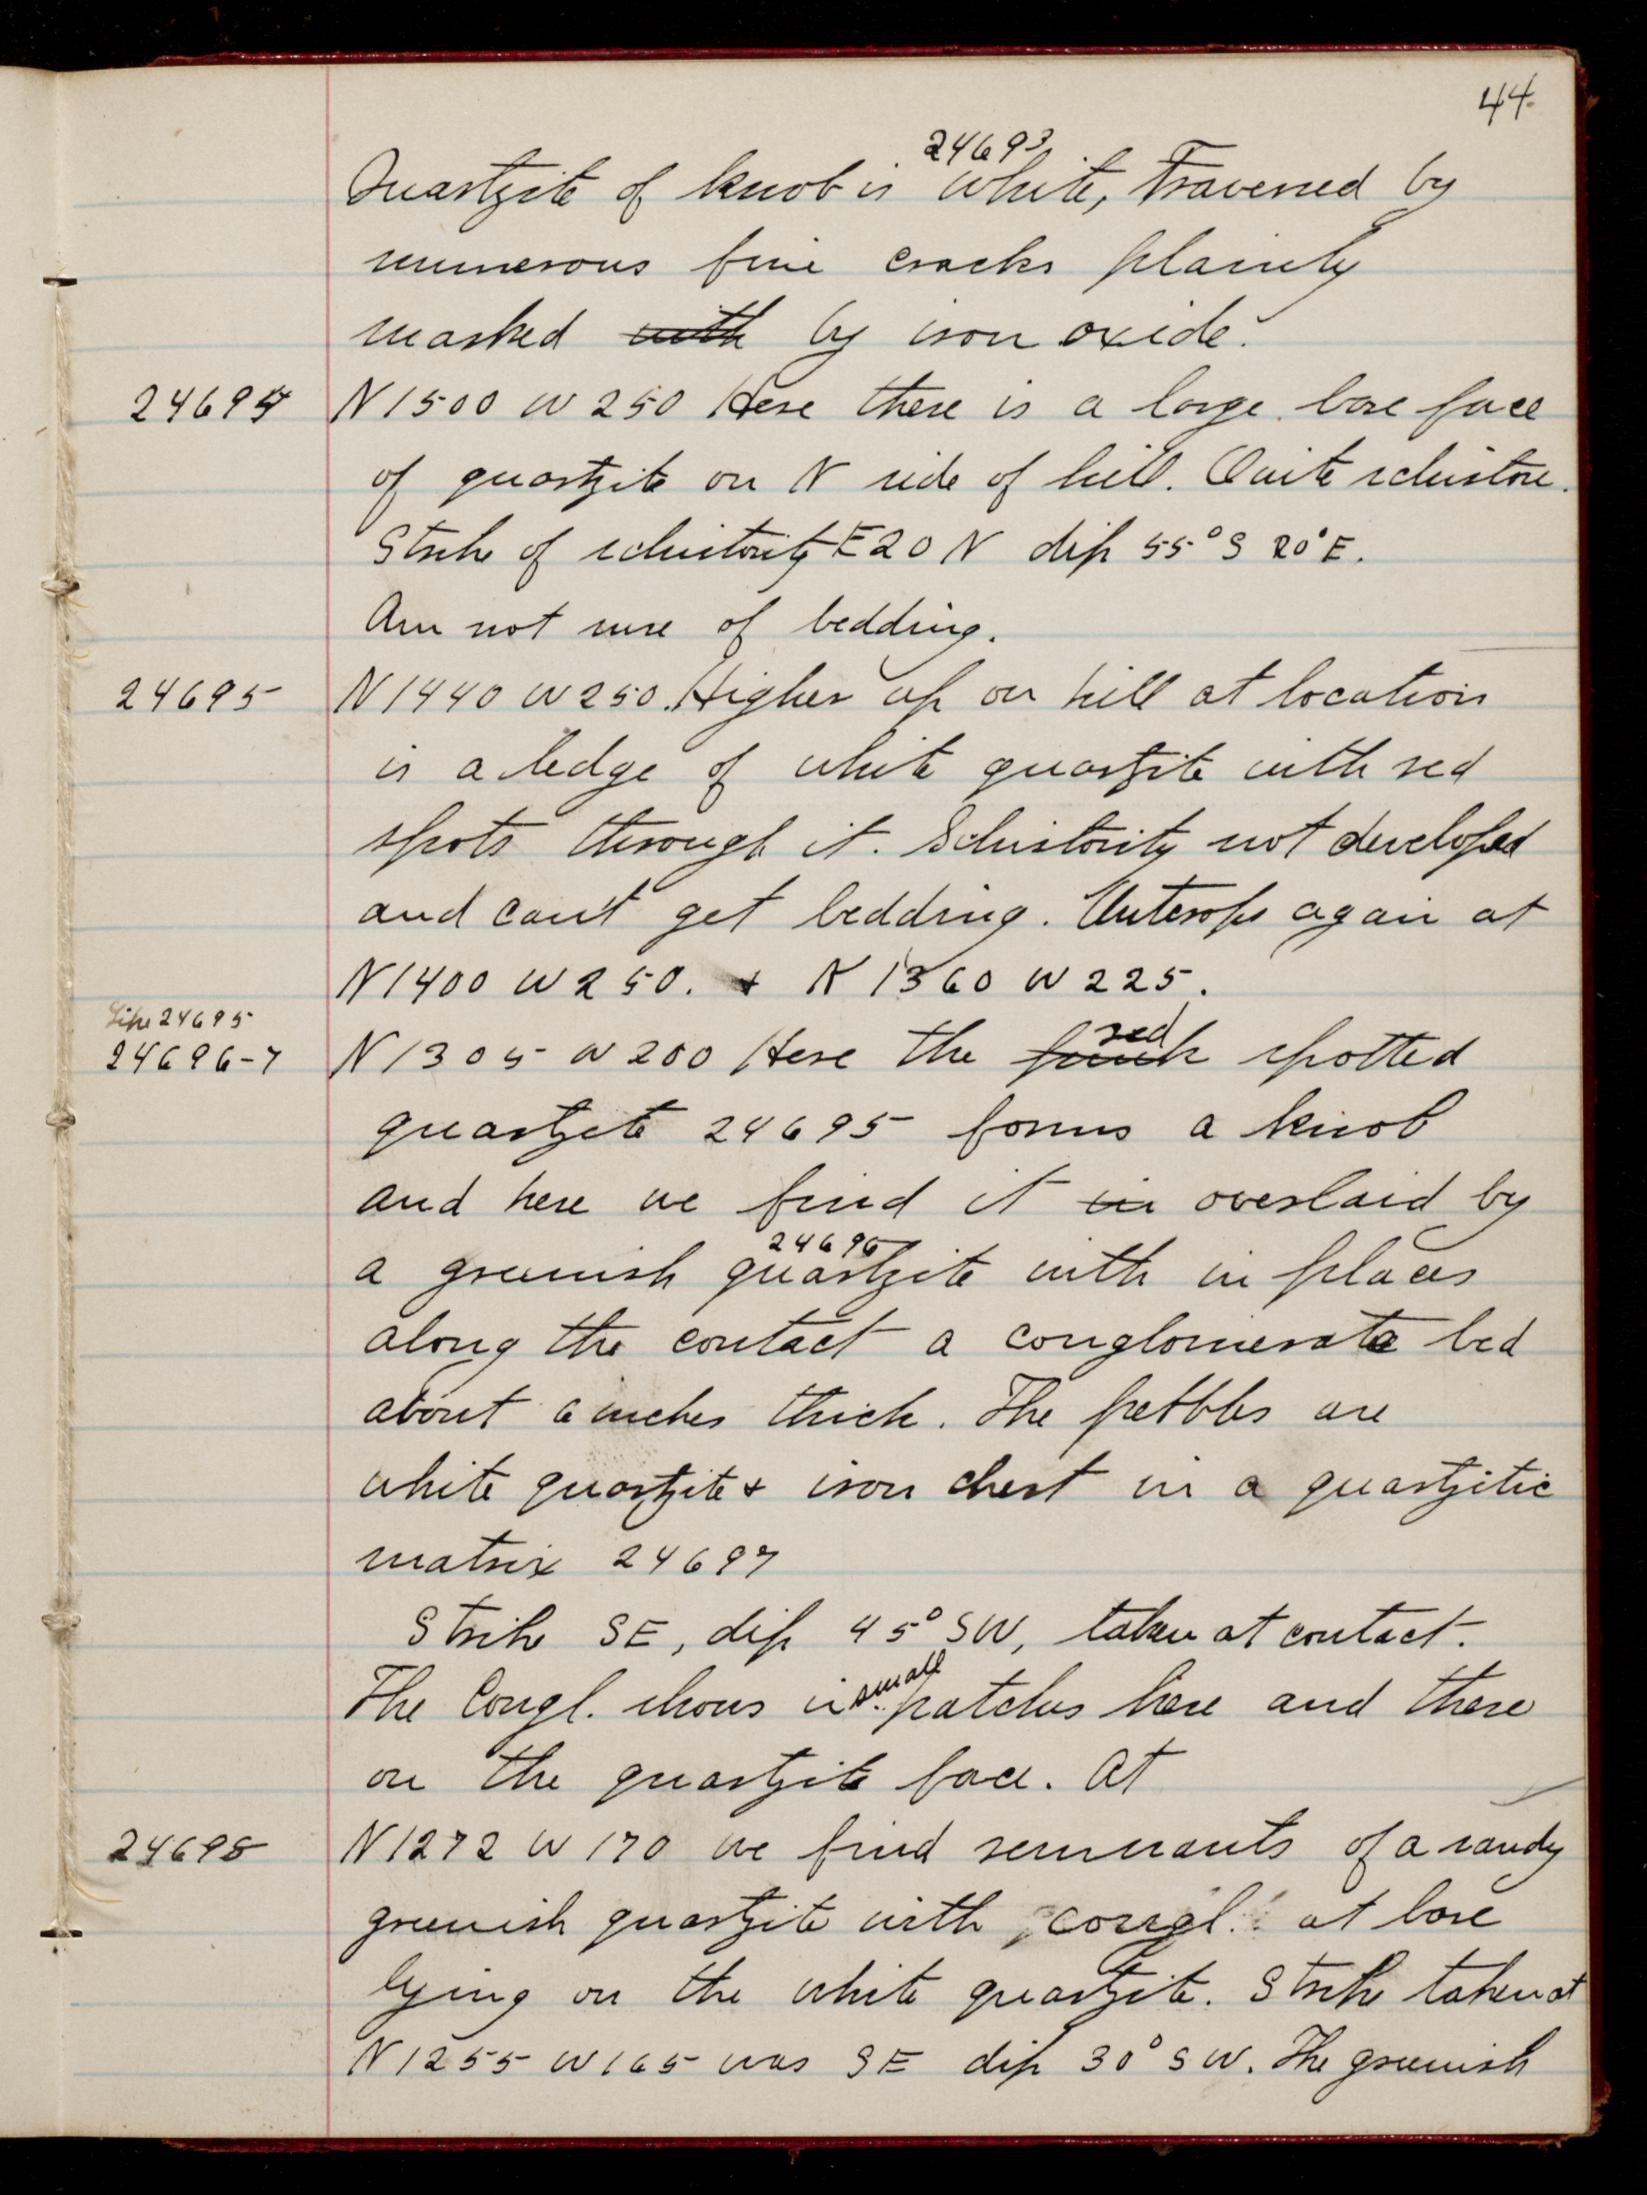 44
24693
Quartzite of knob is white, traversed by
numerous fine cracks plainly
marked with by iron oxide.
24694 N 1500 W 250 Here there is a large bare face
of quartzite on N side of hill. Quite schistose.
Strike of schistosity E 20 N dip 55° S 20° E.
Am not sure of bedding.
24695 N 1440 W 250. Higher up on hill at location
is a ledge of white quartzite with red
spots through it. Schistosity not developed
and can't get bedding. Outcrops again at
N 1400 W 250. + N 1360 W 225.
Like 24695
red
24696-7 N 1305 W 200 Here the spotted
quartzite 24695 forms a knob
and here we find it in overlaid by
24696
a greenish quartzite with in places
along the contact a conglomerate bed
about 6 inches thick. The pebbles are
white quartzite + iron chert in a quartzitic
matrix 24697
Strike SE, dip 45° SW, taken at contact.
small
The Congl. shows in patches here and there
on the quartzite face. At
24698 N 1272 W 170 we find remnants of a sandy
greenish quartzite with congl. at base
lying on the white quartzite. Strike taken at
N 1255 W 165 was SE dip 30° SW. The greenish